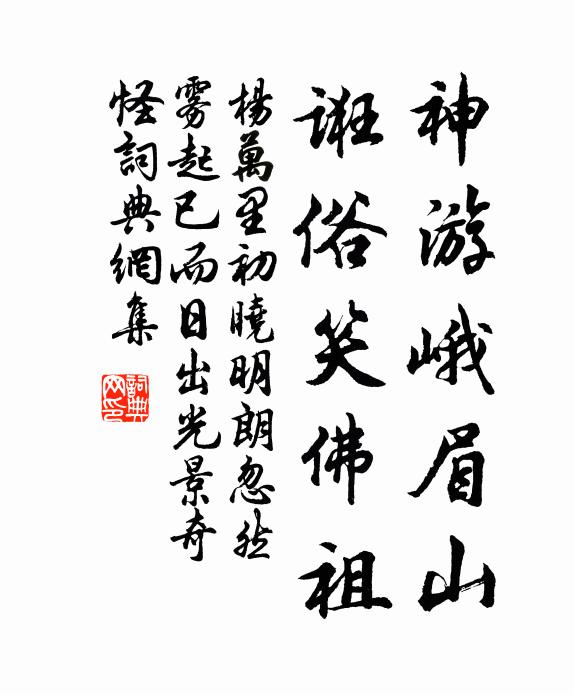 神游峨眉山
诳俗笑佛祖
楊萬里初曉明朗忽然
雾起已而日出光景奇
怪詞典網集
詞典
网印